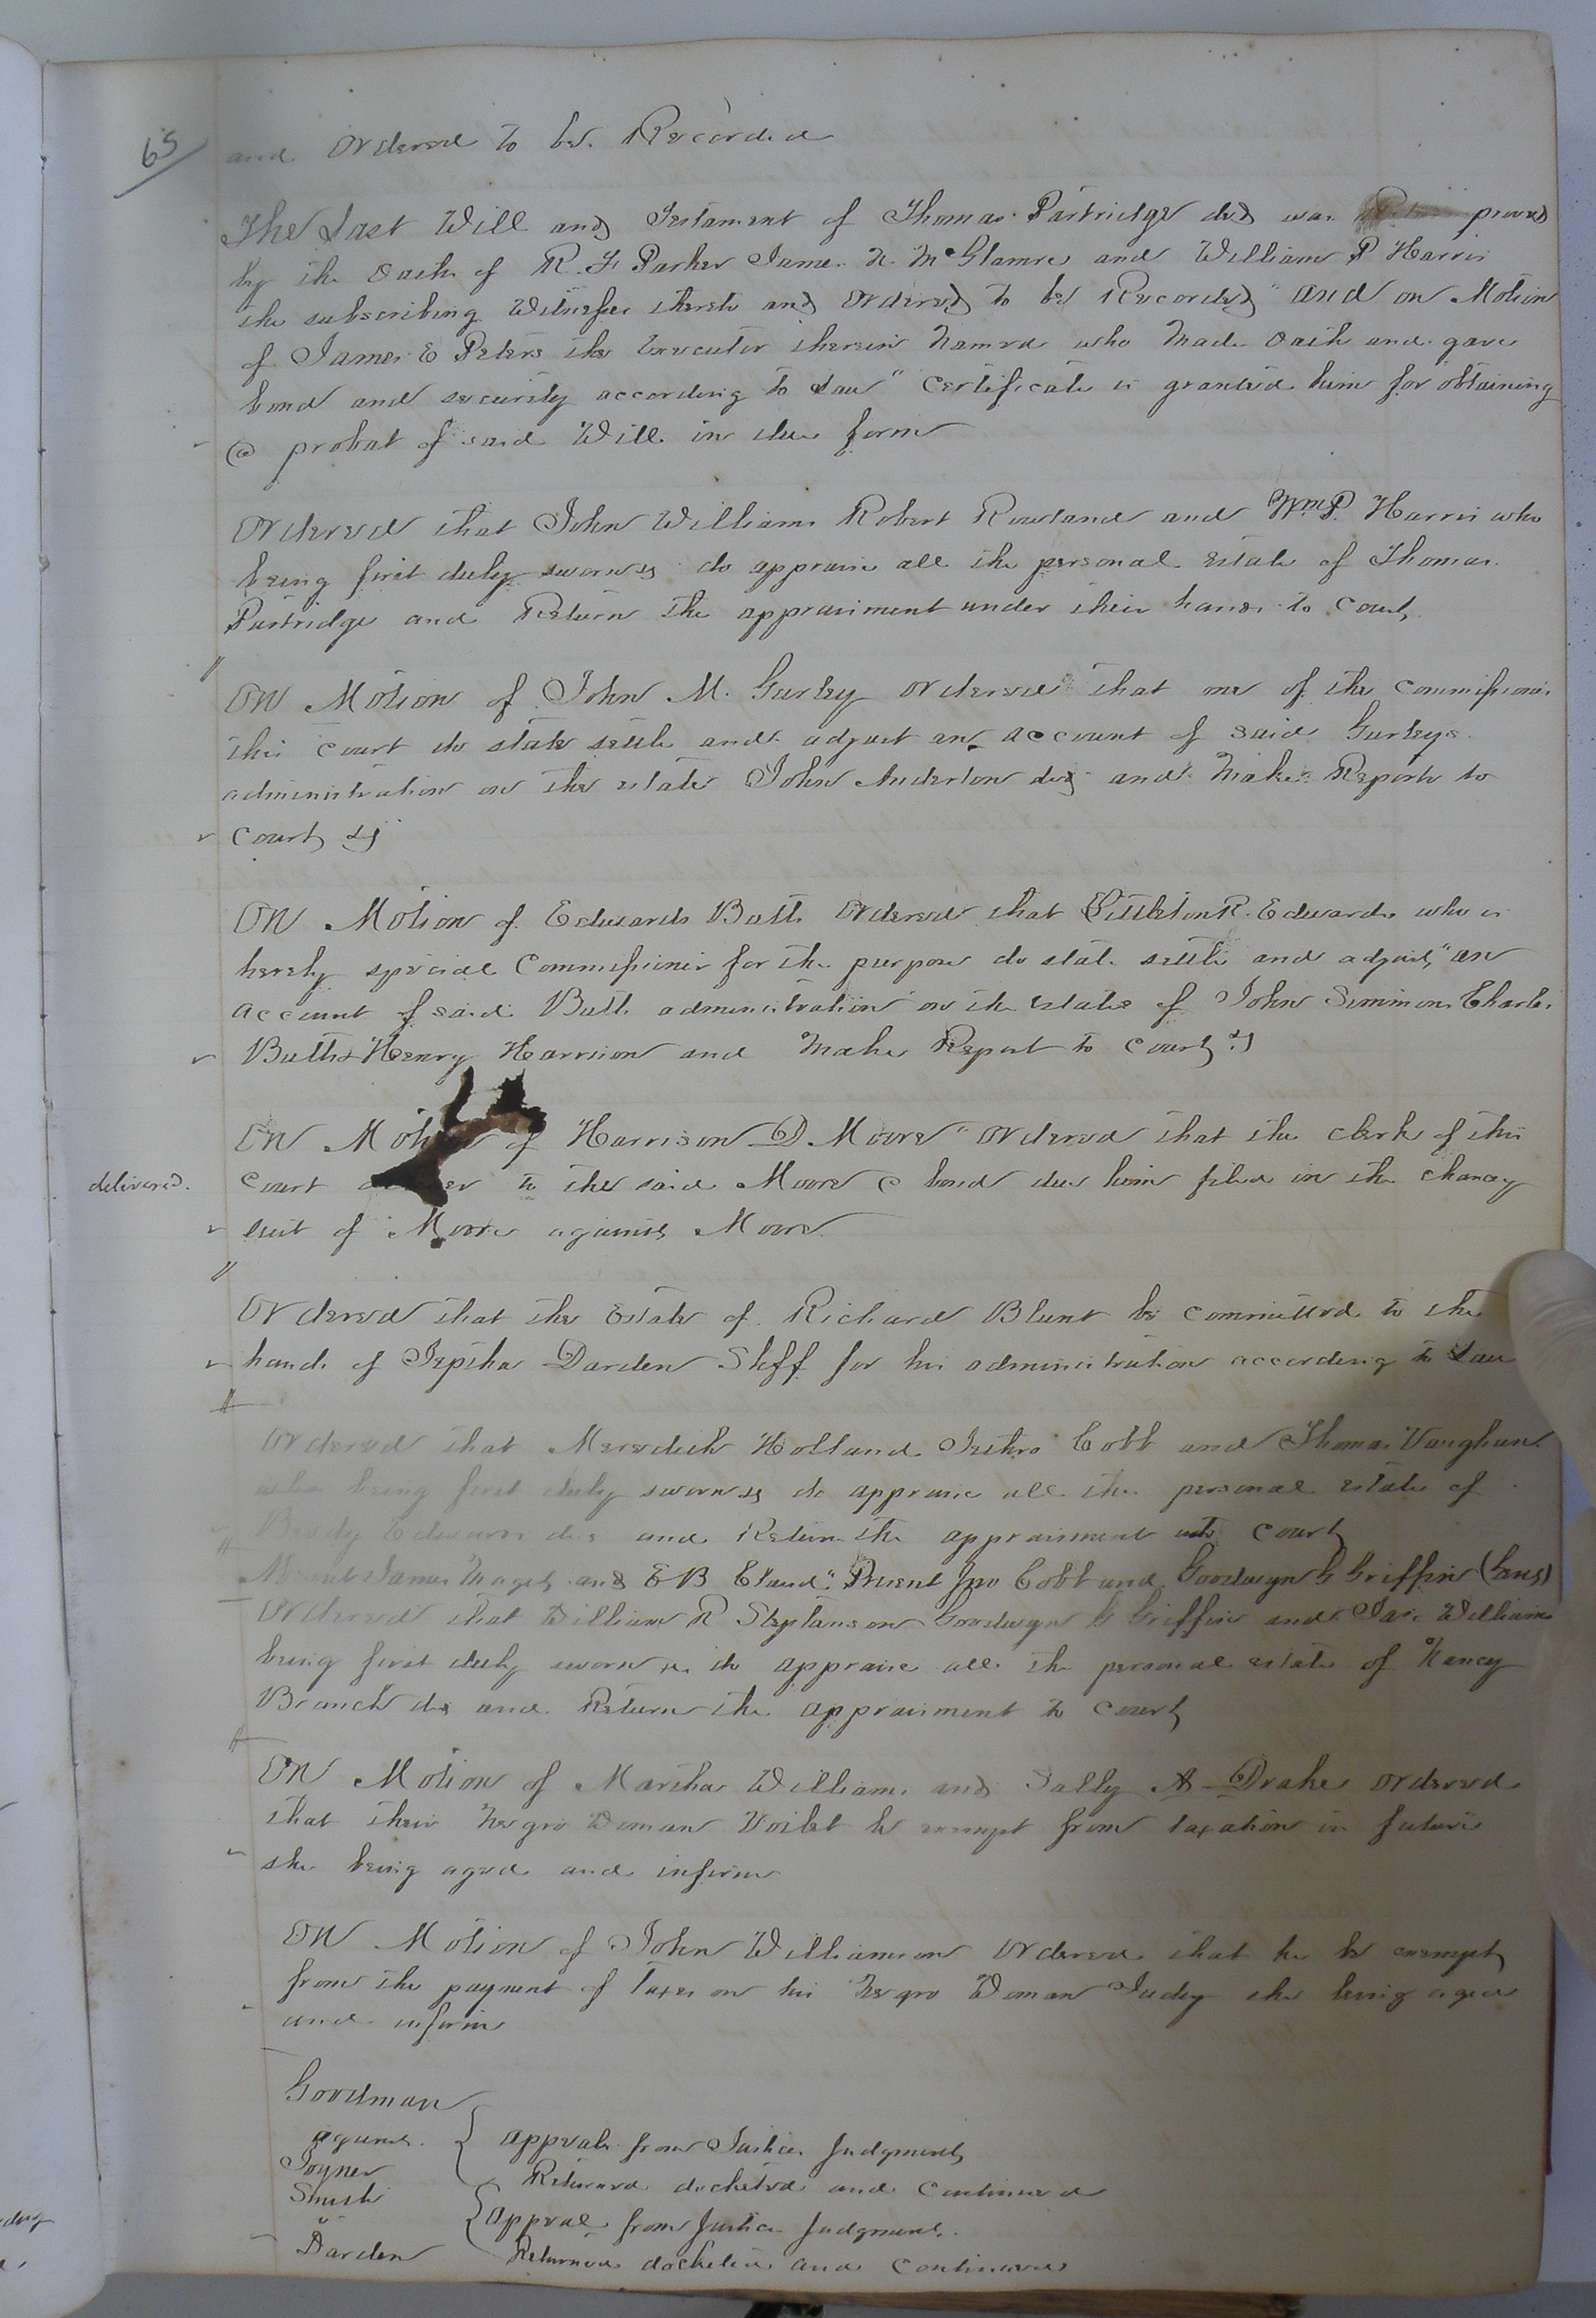 65
and Ordered to be Recorded
The Last Will and Testament of Thomas Partridge decd was proved
by the Oaths of R. F Parker James N. McGlamre and William P Harris
the subscribing Witnesses thereto and Ordered to be Recorded" and on Motion
of James E Peters the Executor therein Named who Made Oath and gave
bond and security according to Law" Certificate is granted him for obtaining
a probat of said Will in due form
Ordered that John Williams Robert Rowland and Wm P. Harris who
being first duly sworn &c do appraise all the personal Estate of Thomas
Partridge and Return the appraisment under their hands to Court
On Motion of John M. Gurley Ordered that one of the Commissioners
this Court do state settle and adjust an account of said Gurleys
administration on the estate John Anderton decd and Make Report to
Court &c
On Motion of Edwards Butts Ordered that Littleton R. Edwards who is
hereby special Commissioner for the purpose do state settle and adjust, "an
account of said Butts administration on the Estates of John Simmons Charles
Butts & Henry Harrison and Make Report to Court &c
On Motion of Harrison D. Moore" Ordered that the clerk of this
delivered.
Court to the said Moore a bond due him filed in the chancy
suit of Moore against Moore
Ordered that the Estate of Richard Blunt be committed to the
hands of Jeptha Darden Shff for his administration according to Law
Ordered that Meredith Holland Jethro Cobb and Thomas Vaughan
who being first duly sworn &c do appraise all the personal Estate of
Edwards decd and Return the appraisment into Court
Absent James Maget and E B Claud". Present Jno Cobb and Goodwyn G Griffin (Gent)
Ordered that William R Stephenson Goodwyn G Griffin and Williams
being first duly sworn &c do appraise all the personal estate of Nancy
Branch dec and Return the appraisment to Court
On Motion of Martha Williams and Sally A Drake Ordered
that their Negro Woman Voilet be exempt from taxation in future
she being aged and infirm
On Motion of John Williamson Ordered that he be exempt
from the payment of Taxes on his Negro Woman Judy she being aged
and infirm
Goodman
against
Joyner
Appeal from Justices Judgment
Returned docketed and continued
"
Darden
Appeal from Justices Judgment.
Returned docketed and continued